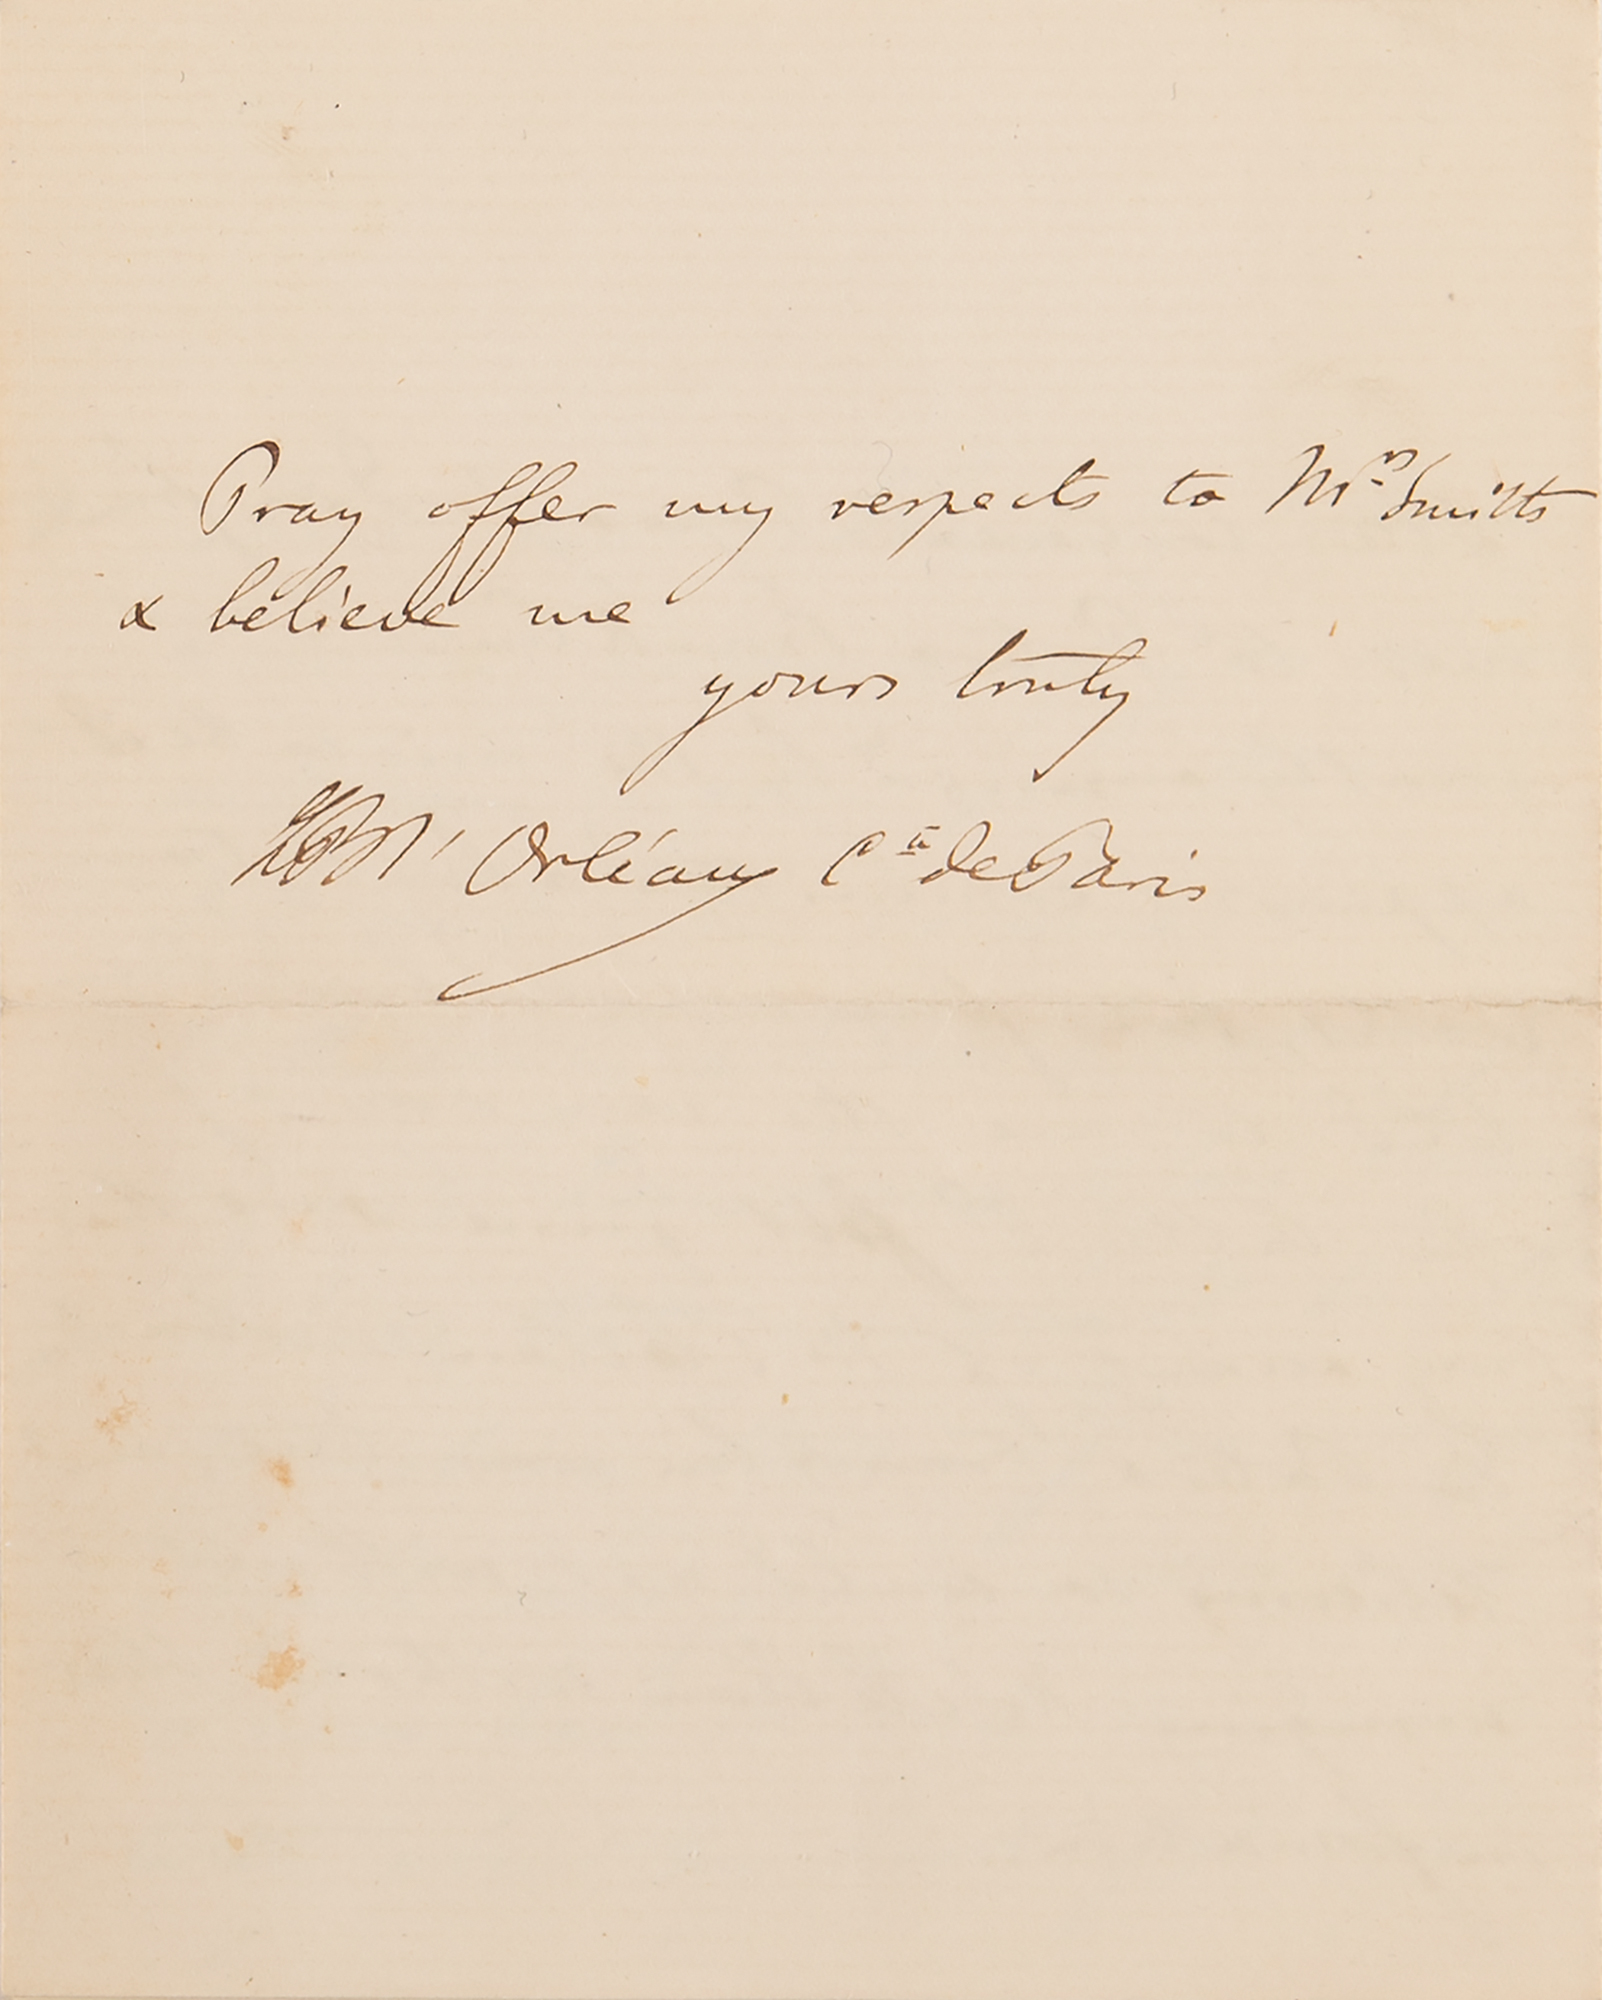 Pray offer my respects to Mrs Smith
& believe me
yours truly
d'Orléans Cte de Paris